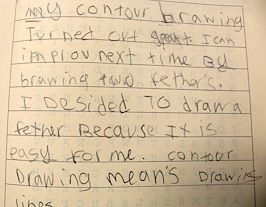 my contour brawing
Turned out great I can
improv next time By
brawing two fether's.
I Desided To drama
fether Because It is
easy for me. contour
Drawing mean's Drawing
lines